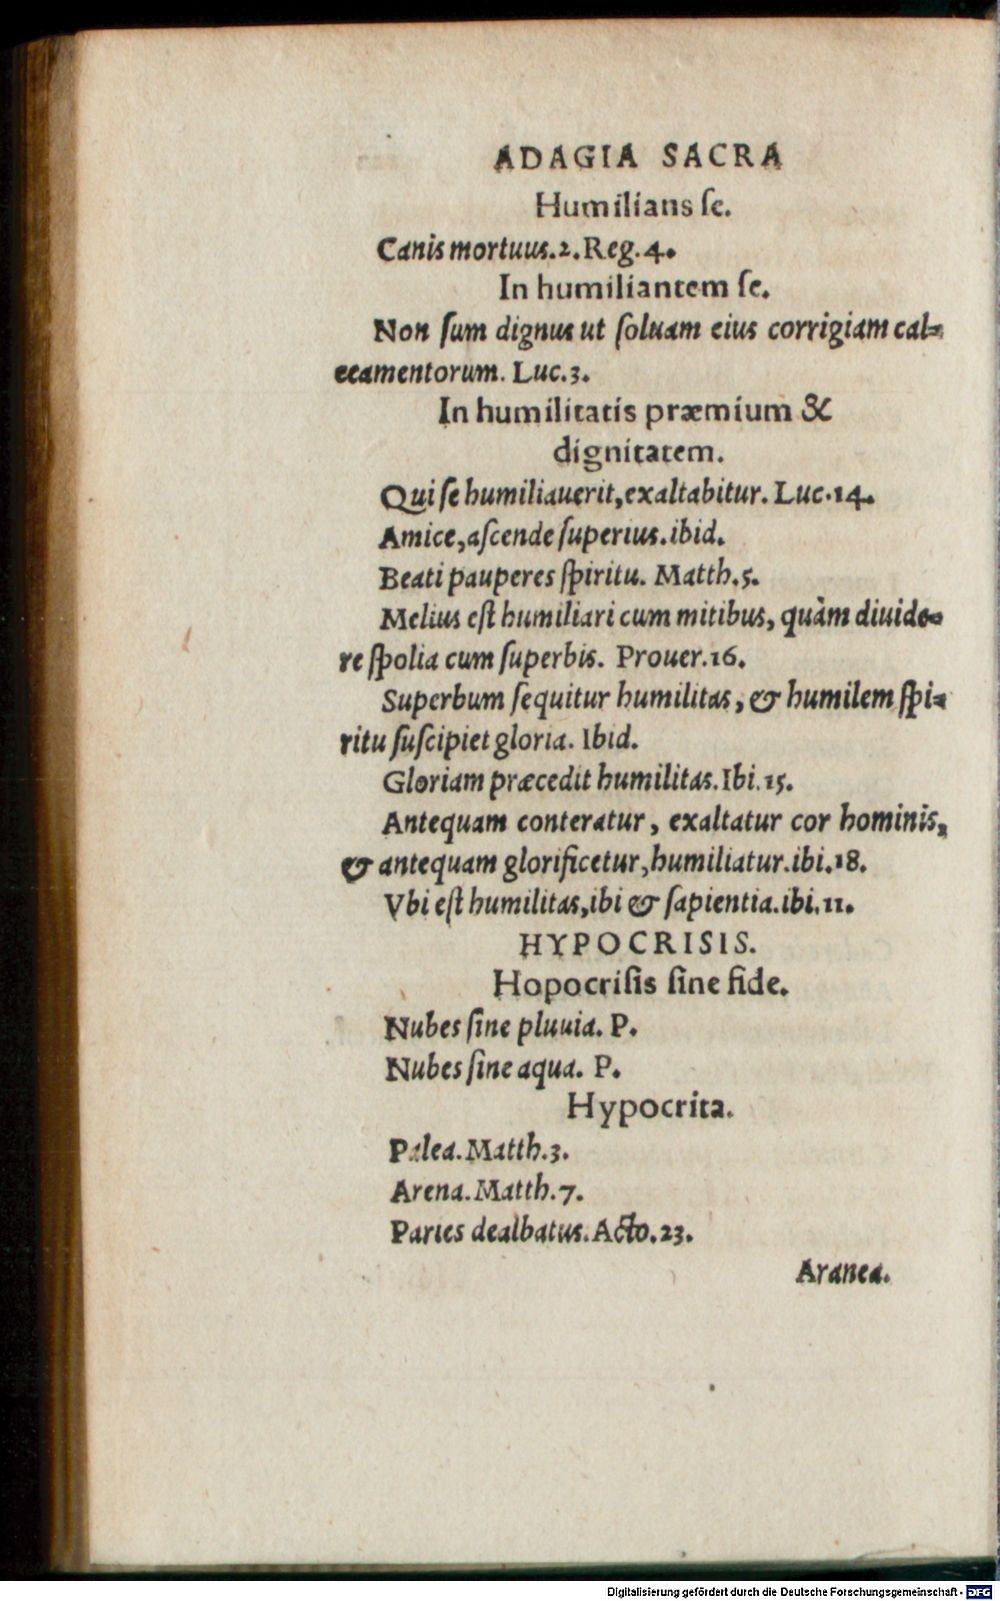 ADAGIA SACRA
Humilians ſe.
Canis mortuus.2.Reg.4.
In humiliantem ſe.
Non ſum dignus ut ſoluam eius corrigiam cal-
ceamentorum. Luc.3.
In humilitatis præmium &
dignitatem.
Qui ſe humiliauerit,exaltabitur. Luc.14.
Amice,aſcende ſuperius.ibid.
Beati pauperes ſpiritu. Matth.5.
Melius eſt humiliari cum mitibus, quàm diuide-
re ſpolia cum ſuperbis. Prouer.16.
Superbum ſequitur humilitas, & humilem ſpi-
ritu ſuſcipiet gloria. Ibid.
Gloriam præcedit humilitas.Ibi.15.
Antequam conteratur, exaltatur cor hominis,
& antequam glorificetur,humiliatur.ibi.18.
Vbi eſt humilitas,ibi & ſapientia.ibi.11.
HYPOCRISIS.
Hopocriſis ſine fide.
Nubes ſine pluuia. P.
Nubes ſine aqua. P.
Hypocrita.
Palea.Matth.3.
Arena.Matth.7.
Paries dealbatus.Acto.23.
Aranea.
Digitalisierung gefördert durch die Deutsche Forschungsgemeinschaft - DFG